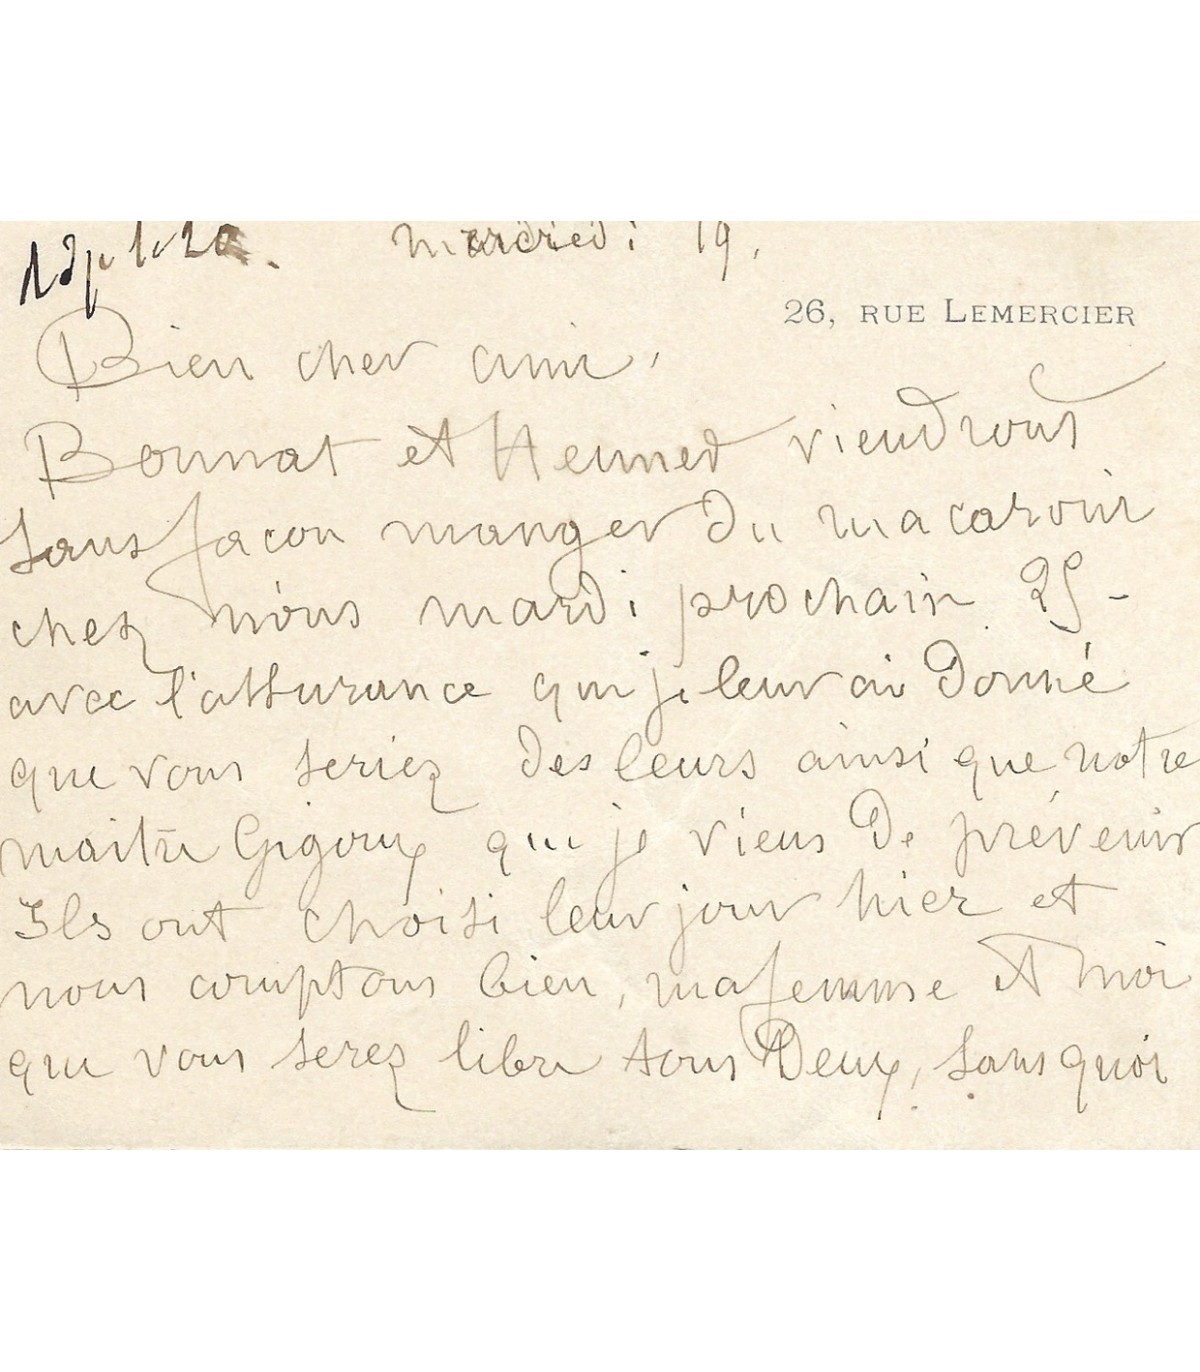 mercredi 19.
26, RUE LEMERCIER
Bien cher ami,
Bonnat et Henner viendront
sans façon manger du macaroni
chez nous mardi prochain 25 -
avec l'assurance que je leur ai donné
que vous seriez des leurs ainsi que notre
maitre Gigoux que je viens de prévenir
Ils ont choisi leur jour hier et
nous comptons bien, ma femme et moi
que vous serez libre tous Deux, sans quoi